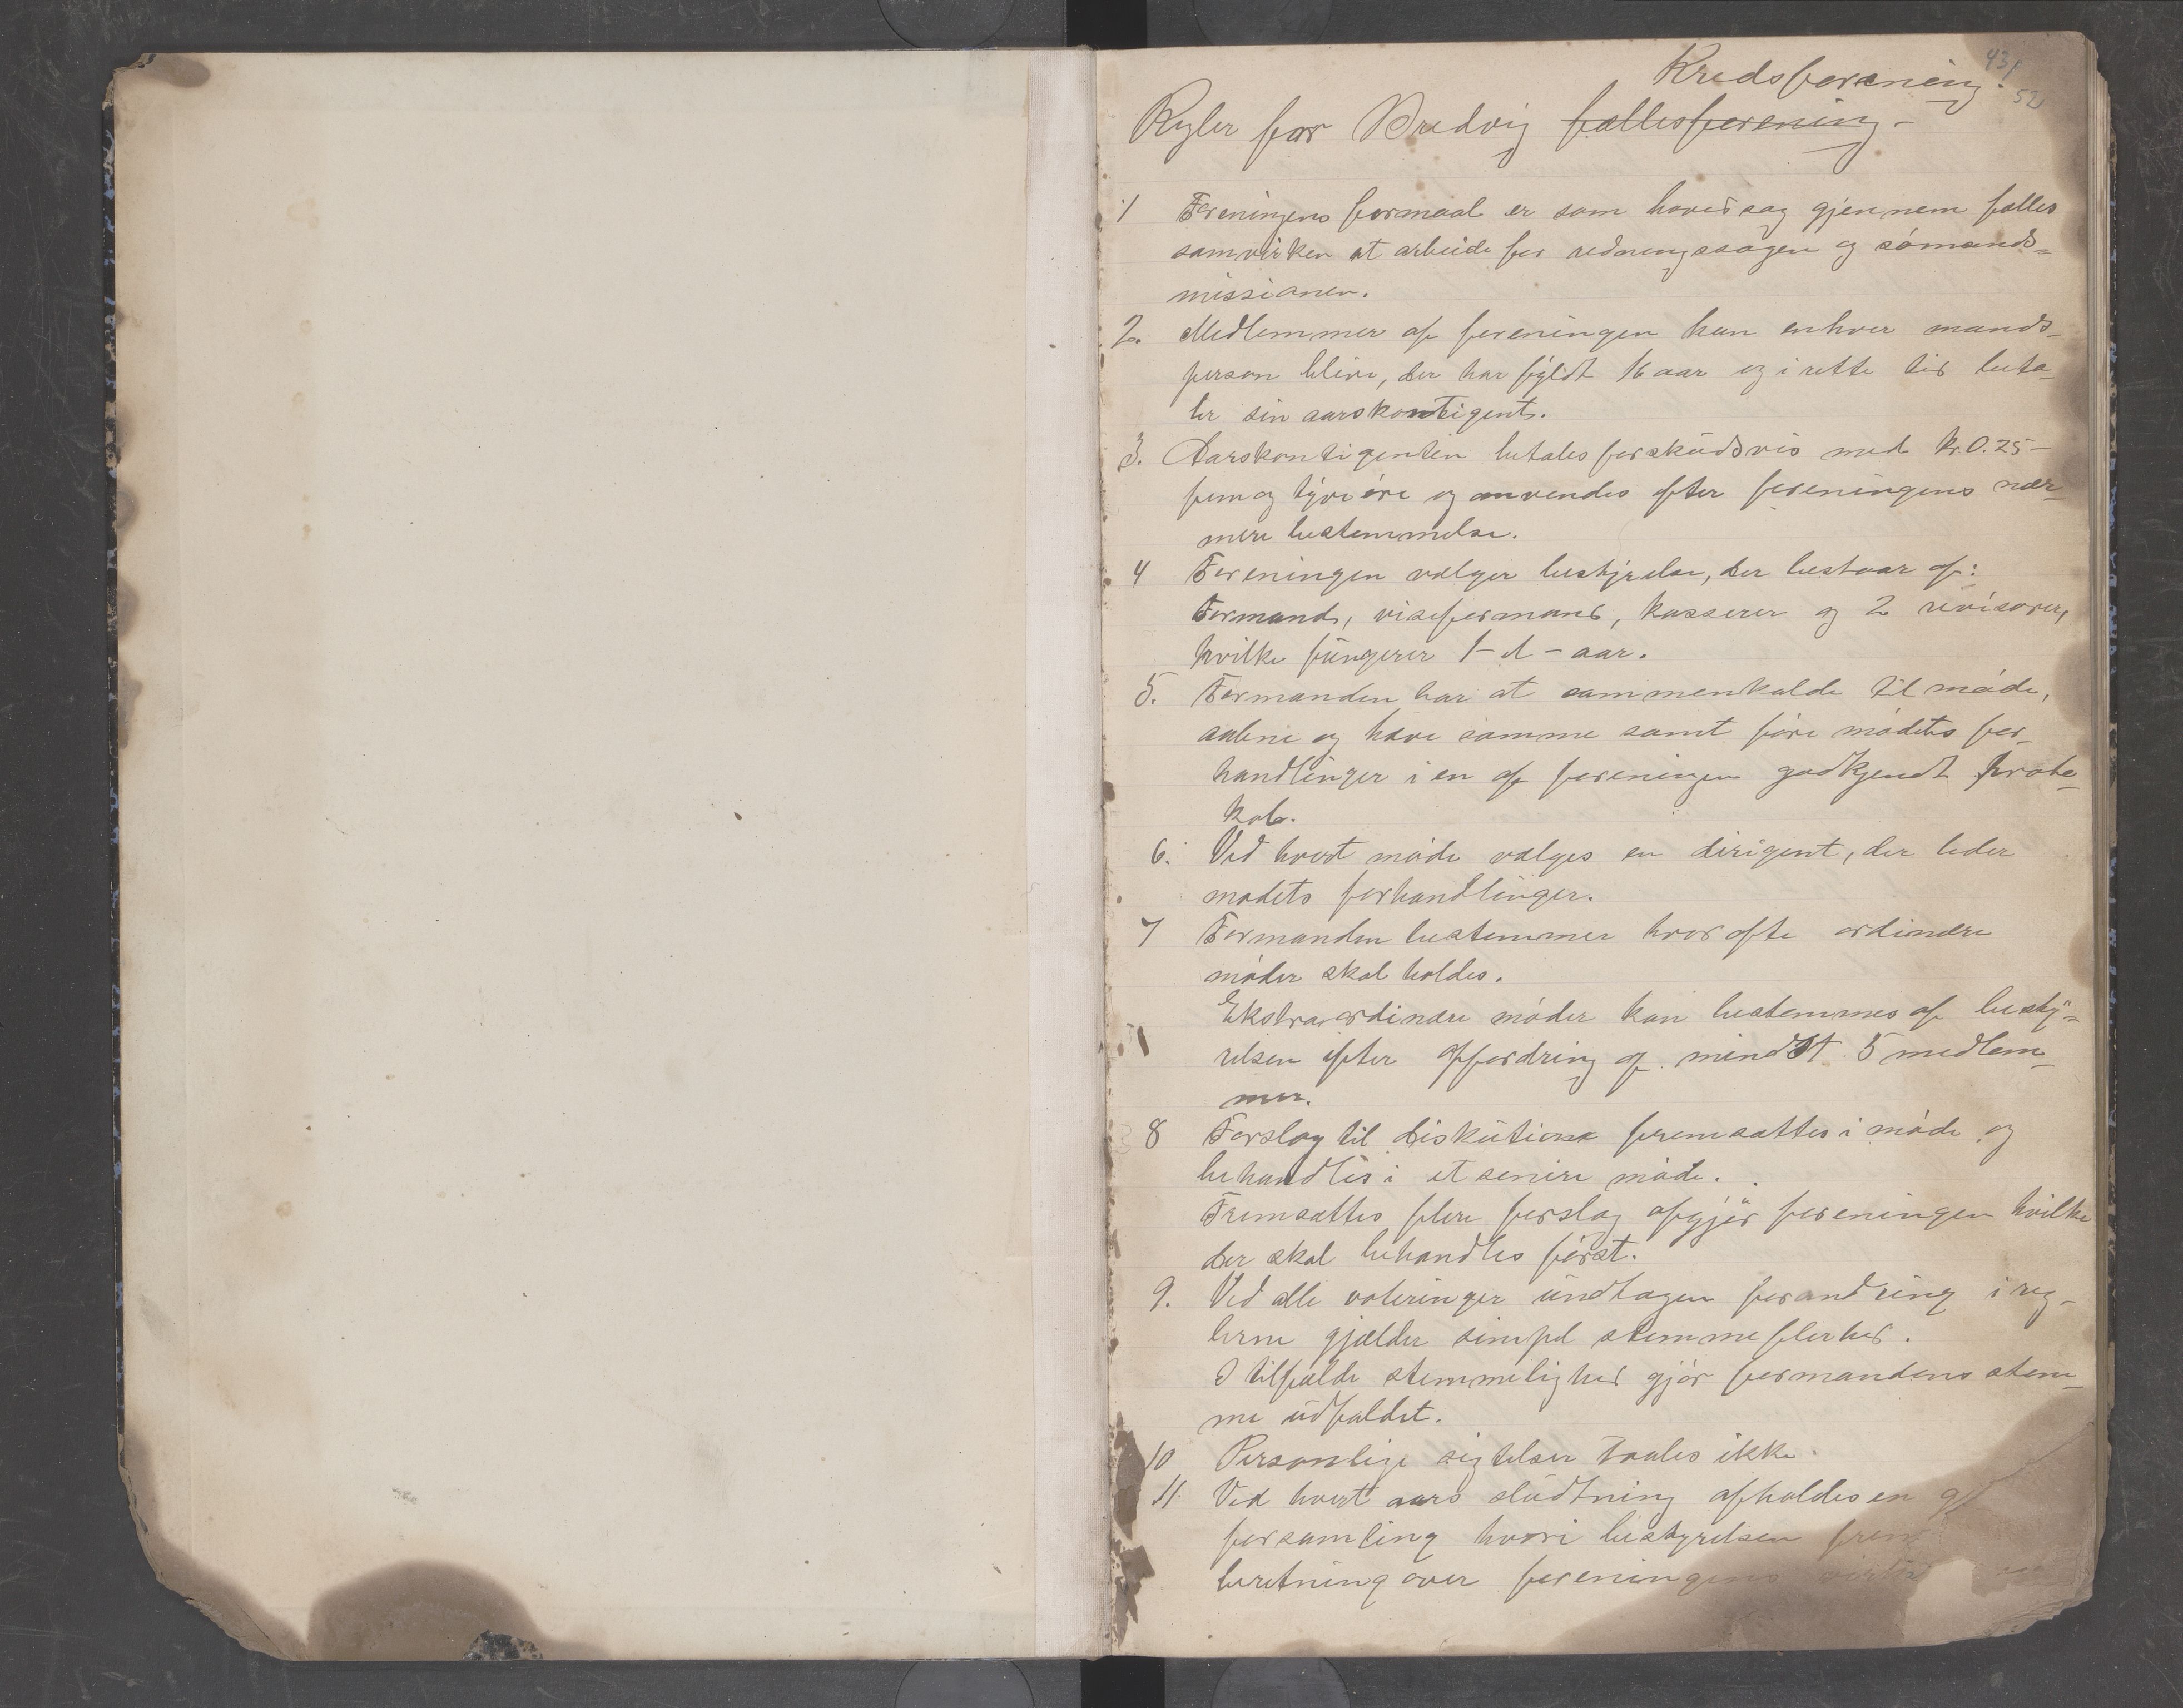 431
52
Kredsforening.
Regler for Bredvig fællesforening -
1 Foreningens formaal er som hovedsag gjennem fælles
samvirken at arbeide for redningssagen og sømands=
missionen.
2. Medlemmer af foreningen kan enhver mands-
person blive, der har fyldt 16 aar og i rette tid beta-
ler sin aarskontigent.
3. Aarskontigenten betales forskudsvis med kr. 0.25 -
fem og tyve øre og anvendes efter foreningens nær-
mere bestemmelse.
4 Foreningen vælger bestyrelse, der bestaar af:
Formand, viseformand, kasserer og 2 revisorer,
hvilke fungerer 1 - et - aar.
5. Formanden har at sammenkalde til møde,
aabne og hæve samme samt føre mødets for-
handlinger i en af foreningen godkjendt proto-
kol.
6. Ved hvert møde vælges en dirigent, der leder
mødets forhandlinger.
7 Formanden bestemmer hvor ofte ordinære
møder skal holdes.
Ekstraordinære møder kan bestemmes af besty=
relsen efter opfordring af mindst 5 medlem-
mer.
8 Forslag til diskution fremsættes i møde og
behandles i et senere møde.
Fremsættes flere forslag afgjør foreningen hvilke
der skal behandles først.
9. Ved alle voteringer undtagen forandring i reg-
lerne gjælder simpel stemmeflerhed.
I tilfælde stemmelighed gjør formandens stem-
me udfaldet.
10 Personlige sigtelser taales ikke.
11. Ved hvert aars sludtning afholdes en
forsamling hvori bestyrelsen frem
beretning over foreningens